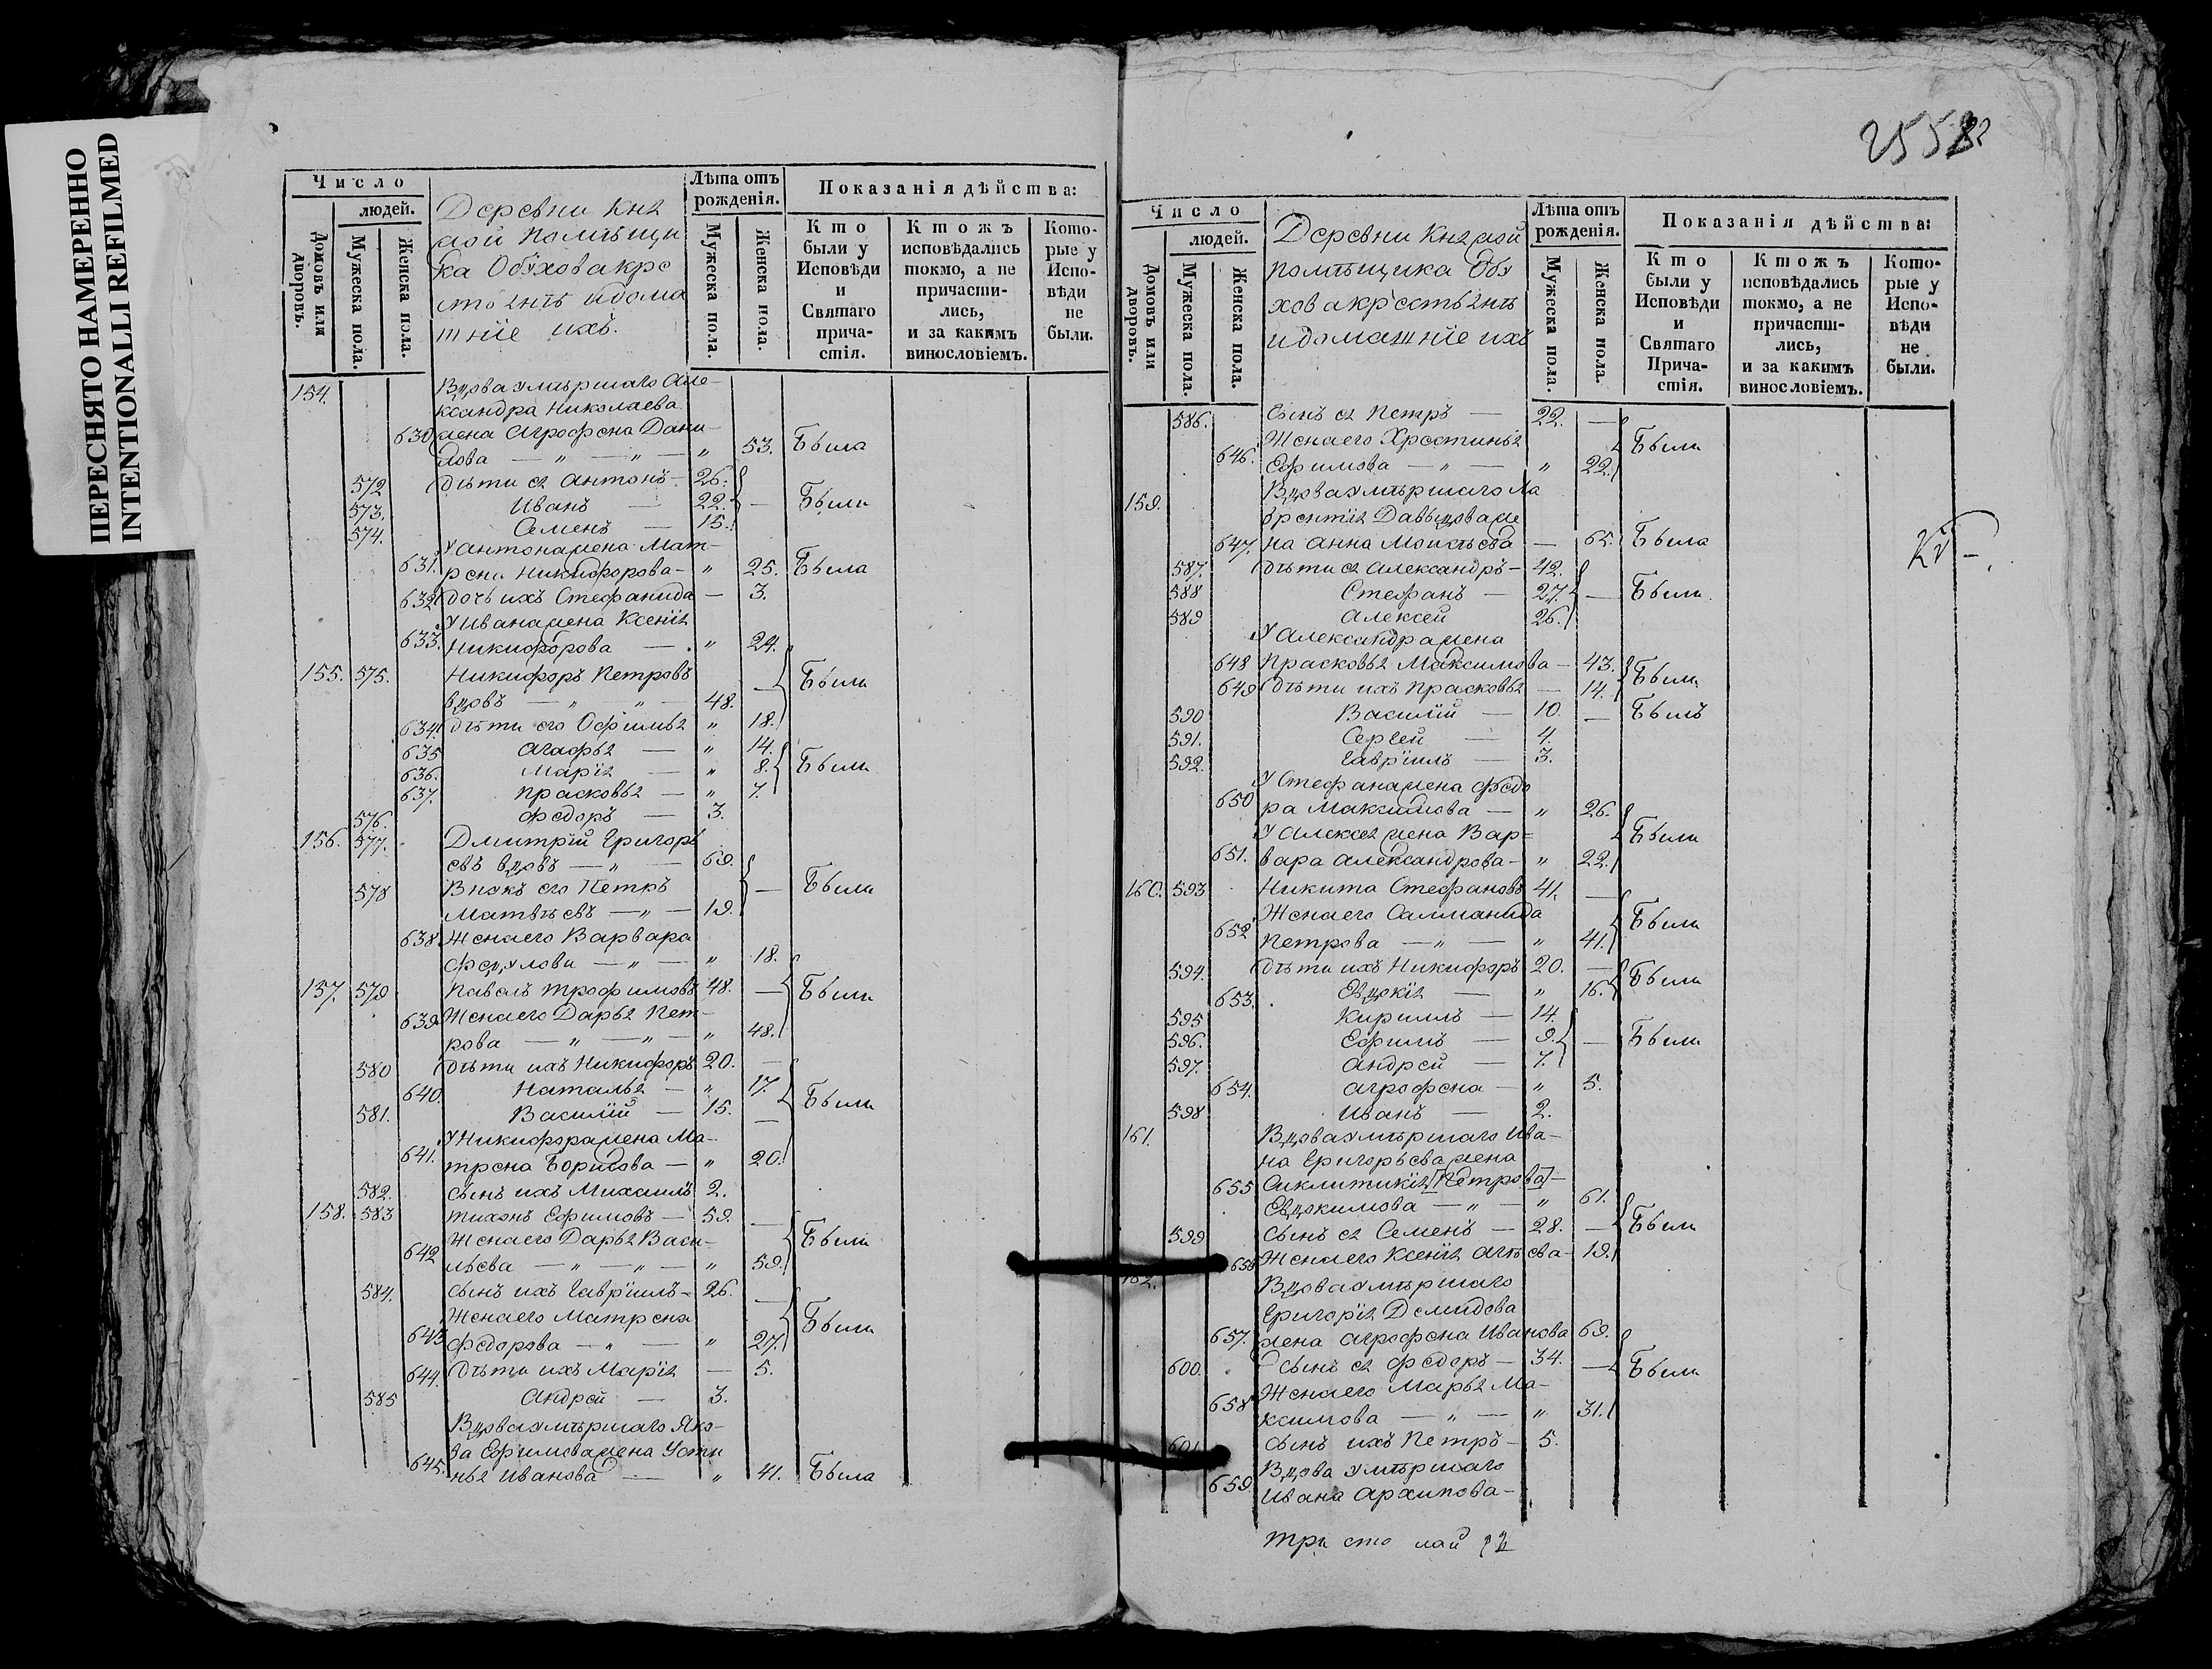 ПЕРЕСНЯТО НАМЕРЕННО
INTENTIONALLI REFILMED
Число
людей.
Домовъ или дворовъ.
Мужеска пола.
Женска пола.
Деревни Кня
жой помѣщи
ка Обухова кре
стьянѣ и дома
шніе ихъ.
Лѣта отъ рожденія.
Мужеска пола.
Женска пола.
Показанія дѣйства:
Кто были у Исповѣди и Святаго причастія.
Ктожъ исповѣдались токмо, а не причастились, и за какимъ винословіемъ.
Которые у Исповѣди не были.
154. Вдова умѣршаго Але-
ксандра Николаева
630 жена Агрофена Дани-
лова — „ — „ — „ 53. Была
572 дѣти ея Антонъ - 26.
573. Иванъ — 22. — Были
574. Семенъ — 15.
У Антона жена Мат-
631. рена Никифорова - „ 25. Была
632 дочь ихъ Стефанида — 3.
У Ивана жена Ксенія
633. Никифорова — „ 24.
155. 575. Никифоръ Петровъ Были
вдовъ — „ — „ — 48.
634. дѣти его Офимья „ 18.
635 Агафья — „ 14.
636. Марія — „ 8. Были
637. Прасковья — „ 7.
576. Федоръ — 3.
156. 577. Дмитрій Григорь
евъ вдовъ — „ — 69.
578 Внукъ его Петръ — Были
Матвѣевъ — „ — 19.
638. Жена его Варвара
Федулова — „ — „ 18.
157. 579 Павелъ Трофимовъ 48. — Были
639 Жена его Дарья Пет-
рова — „ — „ — „ 48.
580 дѣти ихъ Никифоръ 20. —
640. Наталья — „ 17. Были
581. Василій — 15. —
У Никифора жена Ма-
641. трена Борисова — „ 20.
582. сынъ ихъ Михаилъ 2.
158. 583 Тихонъ Ефимовъ — 59. —
Жена его Дарья Васи- Были
642 льева — „ — „ — „ 59.
584. сынъ ихъ Гавріилъ - 26. —
Жена его Матрена Были
643 Федорова — „ — „ 27.
644. дѣти ихъ Марія — 5.
585 Андрей — 3.
Вдова умѣршаго Яко-
ва Ефимова жена Усти
645. нья Иванова — „ 41. Была
Число
людей.
Домовъ или дворовъ.
Мужеска пола.
Женска пола.
Деревни Княжой
помѣщика Обу
хова крестьянѣ
и домашніе ихъ
Лѣта отъ рожденія.
Мужеска пола.
Женска пола.
Показанія дѣйства:
Кто были у Исповѣди и Святаго Причастія.
Ктожъ исповѣдались токмо, а не причастились, и за какимъ винословіемъ.
Которые у Исповѣди не были.
586. Сынъ ея Петръ — 22. —
Жена его Хрестинья Были
646. Ефимова — „ — „ 22.
159. Вдова умѣршаго Ла
врентія Давыдова же
647. на Анна Моисѣева — 65. Была
587. дѣти ея Александръ - 42.
588 Стефанъ — 27. — Были.
589 Алексей 26.
У Александра жена
648 Прасковья Максимова — 43. Были
649 дѣти ихъ Прасковья — 14.
590 Василій — 10. — Былъ
591. Сергей — 4.
592. Гавріилъ — 3.
У Стефана жена Федо
650 ра Максимова — „ 26.
У Алексея жена Вар= Были
651. вара Александрова - „ 22.
160. 593 Никита Стефановъ 41. —
Жена его Салманида Были
652 Петрова — „ — „ 41.
594. дѣти ихъ Никифоръ 20. — Были
653. Евдокія — „ 16.
595 Кириллъ — 14.
596. Ефимъ — 9. — Были
597. Андрей — 7.
654. Агрофена — „ 5.
598 Иванъ — 2.
161. Вдова умѣршаго Ива-
на Григорьева жена
655 Сиклитикія [Петрова] -
Евдокимова — „ — „ 61.
599 сынъ ея Семенъ — 28. — Были
656 Жена его Ксенія Агѣева - 19.
162. Вдова умѣршаго
Григорія Демидова
657. жена Агрофена Иванова 69.
600. Сынъ ея Федоръ — 34. — Были
Жена его Марья Ма-
658 ксимова — „ — „ 31.
601 сынъ ихъ Петръ - 5.
Вдова умѣршаго
659. Ивана Архипова -